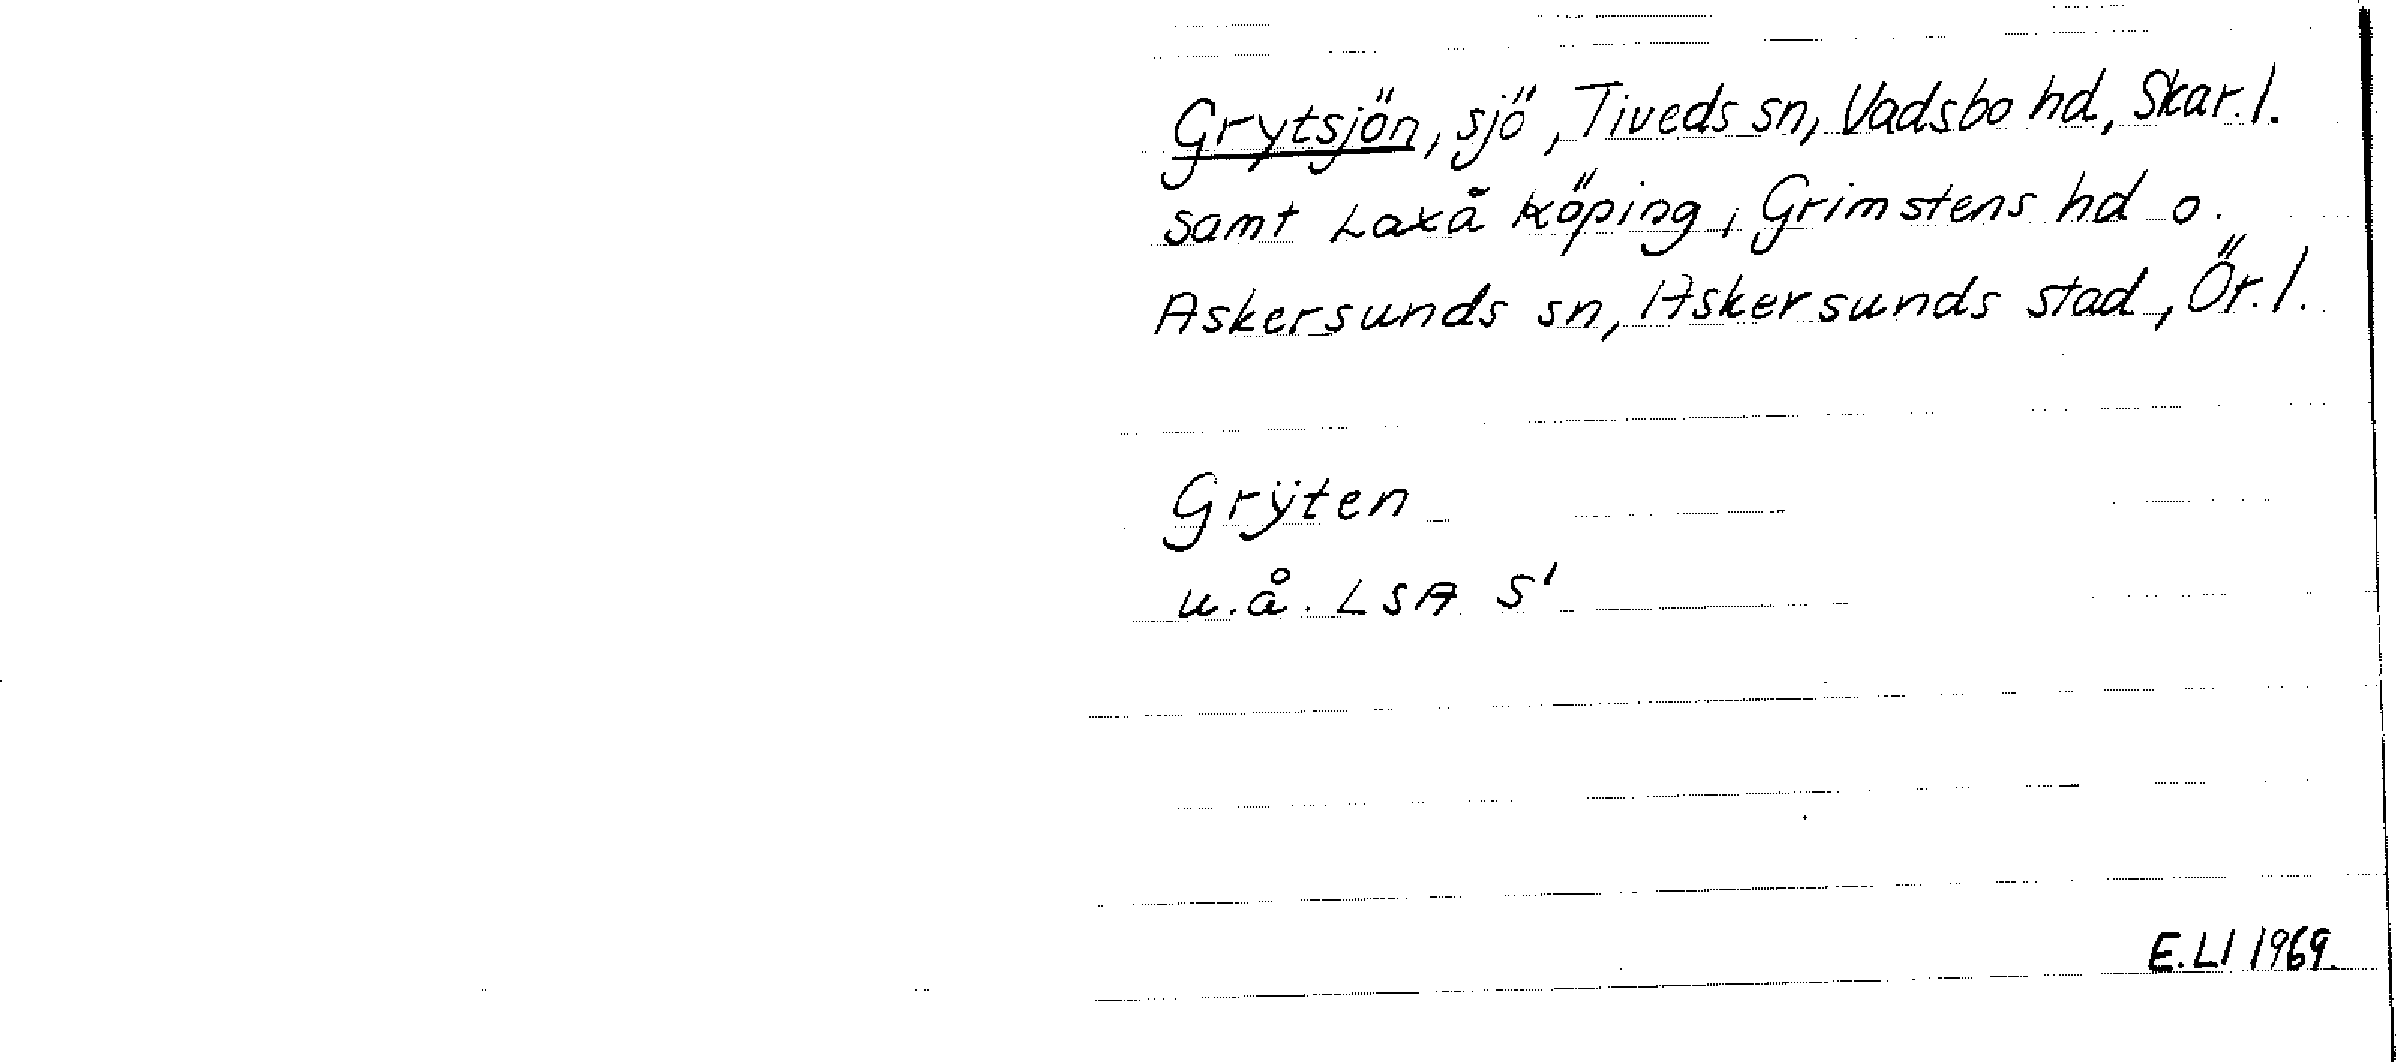 Grytsjön, sjö, Tiveds sn, Vadsbo hd, Skar.l.
samt Laxå köping, Grimstens hd o.
Askersunds sn, Askersunds stad, Ör.l.
Grÿten
u.å. LSA S'
E.LI 1969.